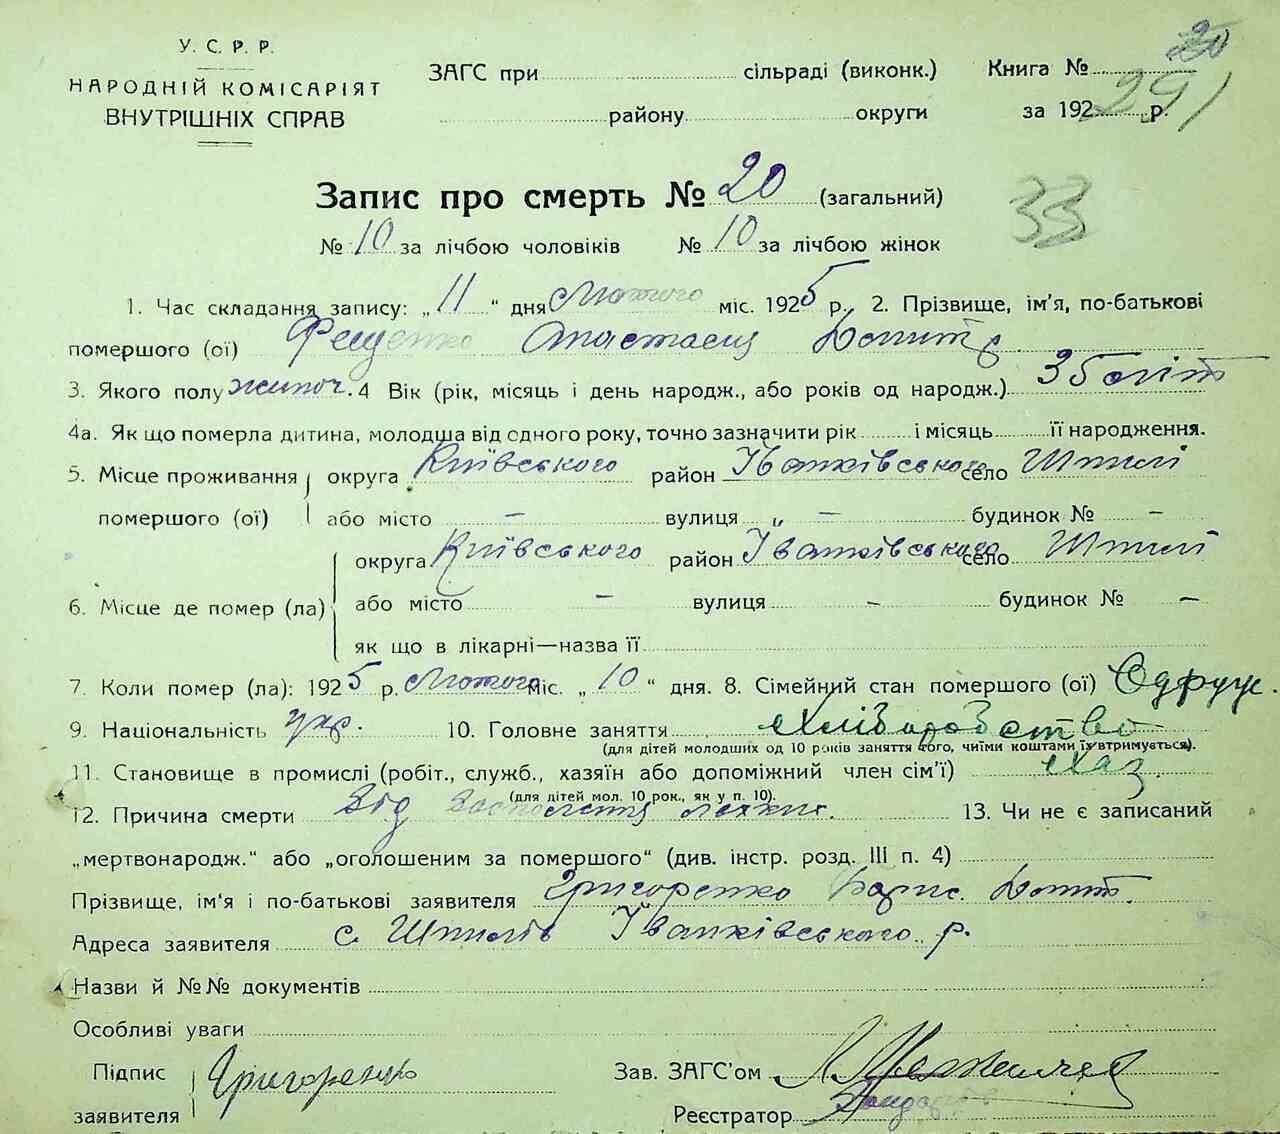 У. С. Р. Р.
НАРОДНІЙ КОМІСАРІЯТ
ВНУТРІШНІХ СПРАВ
ЗАГС при сільраді (виконк.)
району округи
Книга № 20
за 192 р.
291
Запис про смерть № 20 (загальний)
33
№ 10 за лічбою чоловіків № 10 за лічбою жінок
1. Час складання запису: „11“ дня Лютого міс. 1925 р. 2. Прізвище, ім'я, по-батькові
помершого (ої) Фещенко Анастасия Дмитр.
3. Якого полу жиноч. 4 Вік (рік, місяць і день народж., або років од народж.) 35 літ
4а. Як що померла дитина, молодша від одного року, точно зазначити рік і місяць її народження.
5. Місце проживання округа Київського район Іванківського село Шпилі
помершого (ої) або місто – вулиця „ – будинок № –
округа Київського район Іванківського село Шпилі
6. Місце де помер (ла) або місто – вулиця – будинок № –
як що в лікарні—назва її
7. Коли помер (ла): 1925 р. Лютого міс. „10“ дня. 8. Сімейний стан помершого (ої) Одруж.
9. Національність укр. 10. Головне заняття Хліборобство
(для дітей молодших од 10 років заняття того, чиїми коштами їх втримується).
11. Становище в промислі (робіт., служб., хазяїн або допоміжний член сім'ї) Хаз.
(для дітей мол. 10 рок., як у п. 10).
12. Причина смерти Від легких. 13. Чи не є записаний
„мертвонародж.“ або „оголошеним за помершого“ (див. інстр. розд. III п. 4)
Прізвище, ім'я і по-батькові заявителя Григоренко Борис Дмит.
Адреса заявителя с. Шпилів Іванківського р.
Назви й №№ документів
Особливі уваги
Підпис заявителя Григоренко
Зав. ЗАГС'ом
Реєстратор